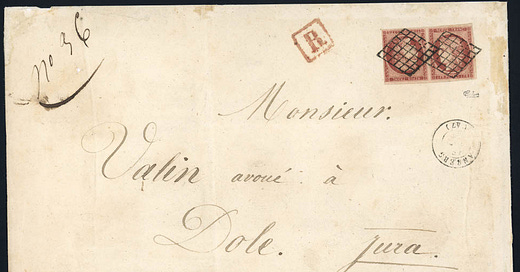 nº 36
R
Monsieur.
Valin avoué à
Dole. Jura.